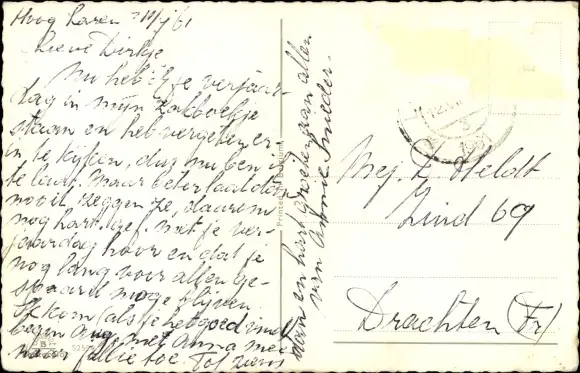 Hoog Laren 11/j 61
Lieve Dirkje
Nu heb ik je verjaar-
dag in mijn zakboekje
staan en heb vergeten er-
in te kijken, dus nu ben ik
te laat. Maar beter laat dan
nooit. Zeggen ze, daarom
nog hart. gef. met je ver-
jaardag hoor en dat je
nog lang voor allen ge-
spaard moge blijven
Ik kom (als je het goed vindt)
begin Aug. met Anna mee
naar jullie toe. Tot ziens
dan en hart groeten aan allen
van Annie Smeder.
Mej. D. Heldt
Zuid 69
Drachten (Fr)